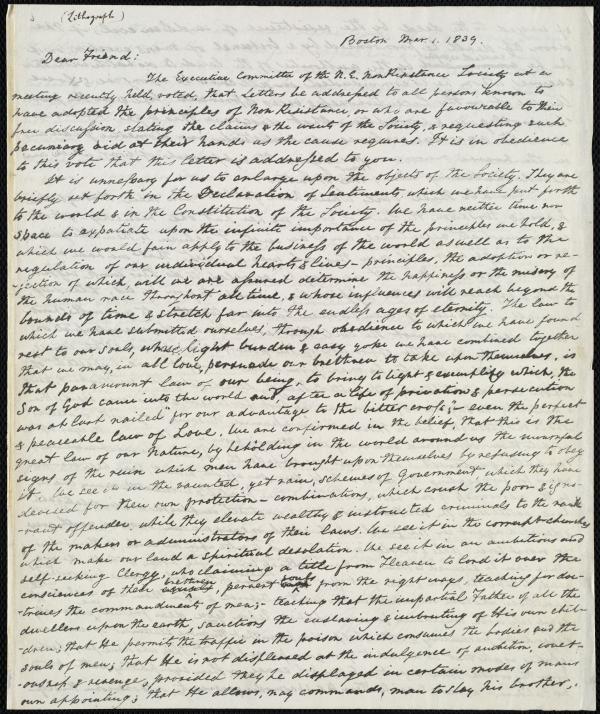 (Lithograph)
Boston Mar. 1. 1839.
Dear Friend:
The Executive Committee of the N.E. Non Resistance Society at a
meeting recently held, voted, that Letters be addressed to all persons known to
have adopted the principles of Non Resistance or who are favourable to their
free discussion stating the claims & the wants of the Society, & requesting such
pecuniary aid at their hands as the cause requires. It is in obedience
to this vote that this letter is addressed to you.
It is unnessary for us to enlarge upon the objects of the Society. They are
briefly set forth in the Declaration of Sentiments, which we have put forth
to the world & in the Constitution of the Society. We have neither time nor
space to expatiate upon the infinite importance of the principles we hold, &
which we would fain apply to the business of the world as well as to the
regulation of our individual hearts & lives – principles, the adoption or re-
-jection of which, will we are assured determine the happiness or the misery of
the human race throughout all time, & whose influences will reach beyond the
bounds of time & stretch far into the endless ages of eternity. The law to
which we have submitted ourselves, through obedience to which we have found
rest to our souls, whose light burden & easy yoke we have combined together
that we may, in all love, persuade our brethren to take upon themselves, is
that paramount law of our being, to bring to light & exemplify which, the
Son of God came into the world and, after a life of privation & persecution
was at last nailed "for our advantage to the bitter cross"; – even the perfect
& peaceable Law of Love. We are confirmed in the belief, that this is the
great law of our Nature, by beholding in the world around us the mournful
signs of the ruin which men have brought upon themselves by refusing to obey
it. We see it in the vaunted, yet vain, schemes of Government which they have
devised for their own protection – combinations, which crush the poor & igno-
-rant offender, while they elevate wealthy & instructed criminals to the rank
of the makers or administrators of their laws. We see it in the corrupt churches
which make our land a spiritual desolation. We see it in an ambitious and
self-seeking Clergy, who claiming a title from Heaven to lord it over the
consciences of their brethren, pervert souls from the right ways, teaching for doc-
-trines the commandments of men; – teaching that the impartial Father of all the
dwellers upon the earth, sanctions the enslaving & imbruting of His own chil-
-dren; that He permits the traffic in the poison which consumes the bodies and the
souls of men; that He is not displeased at the indulgence of ambition, covet-
-ousness & revenge, provided they be displayed in certain modes of man's
own appointing; that He allows, nay commands, man to slay his brother,